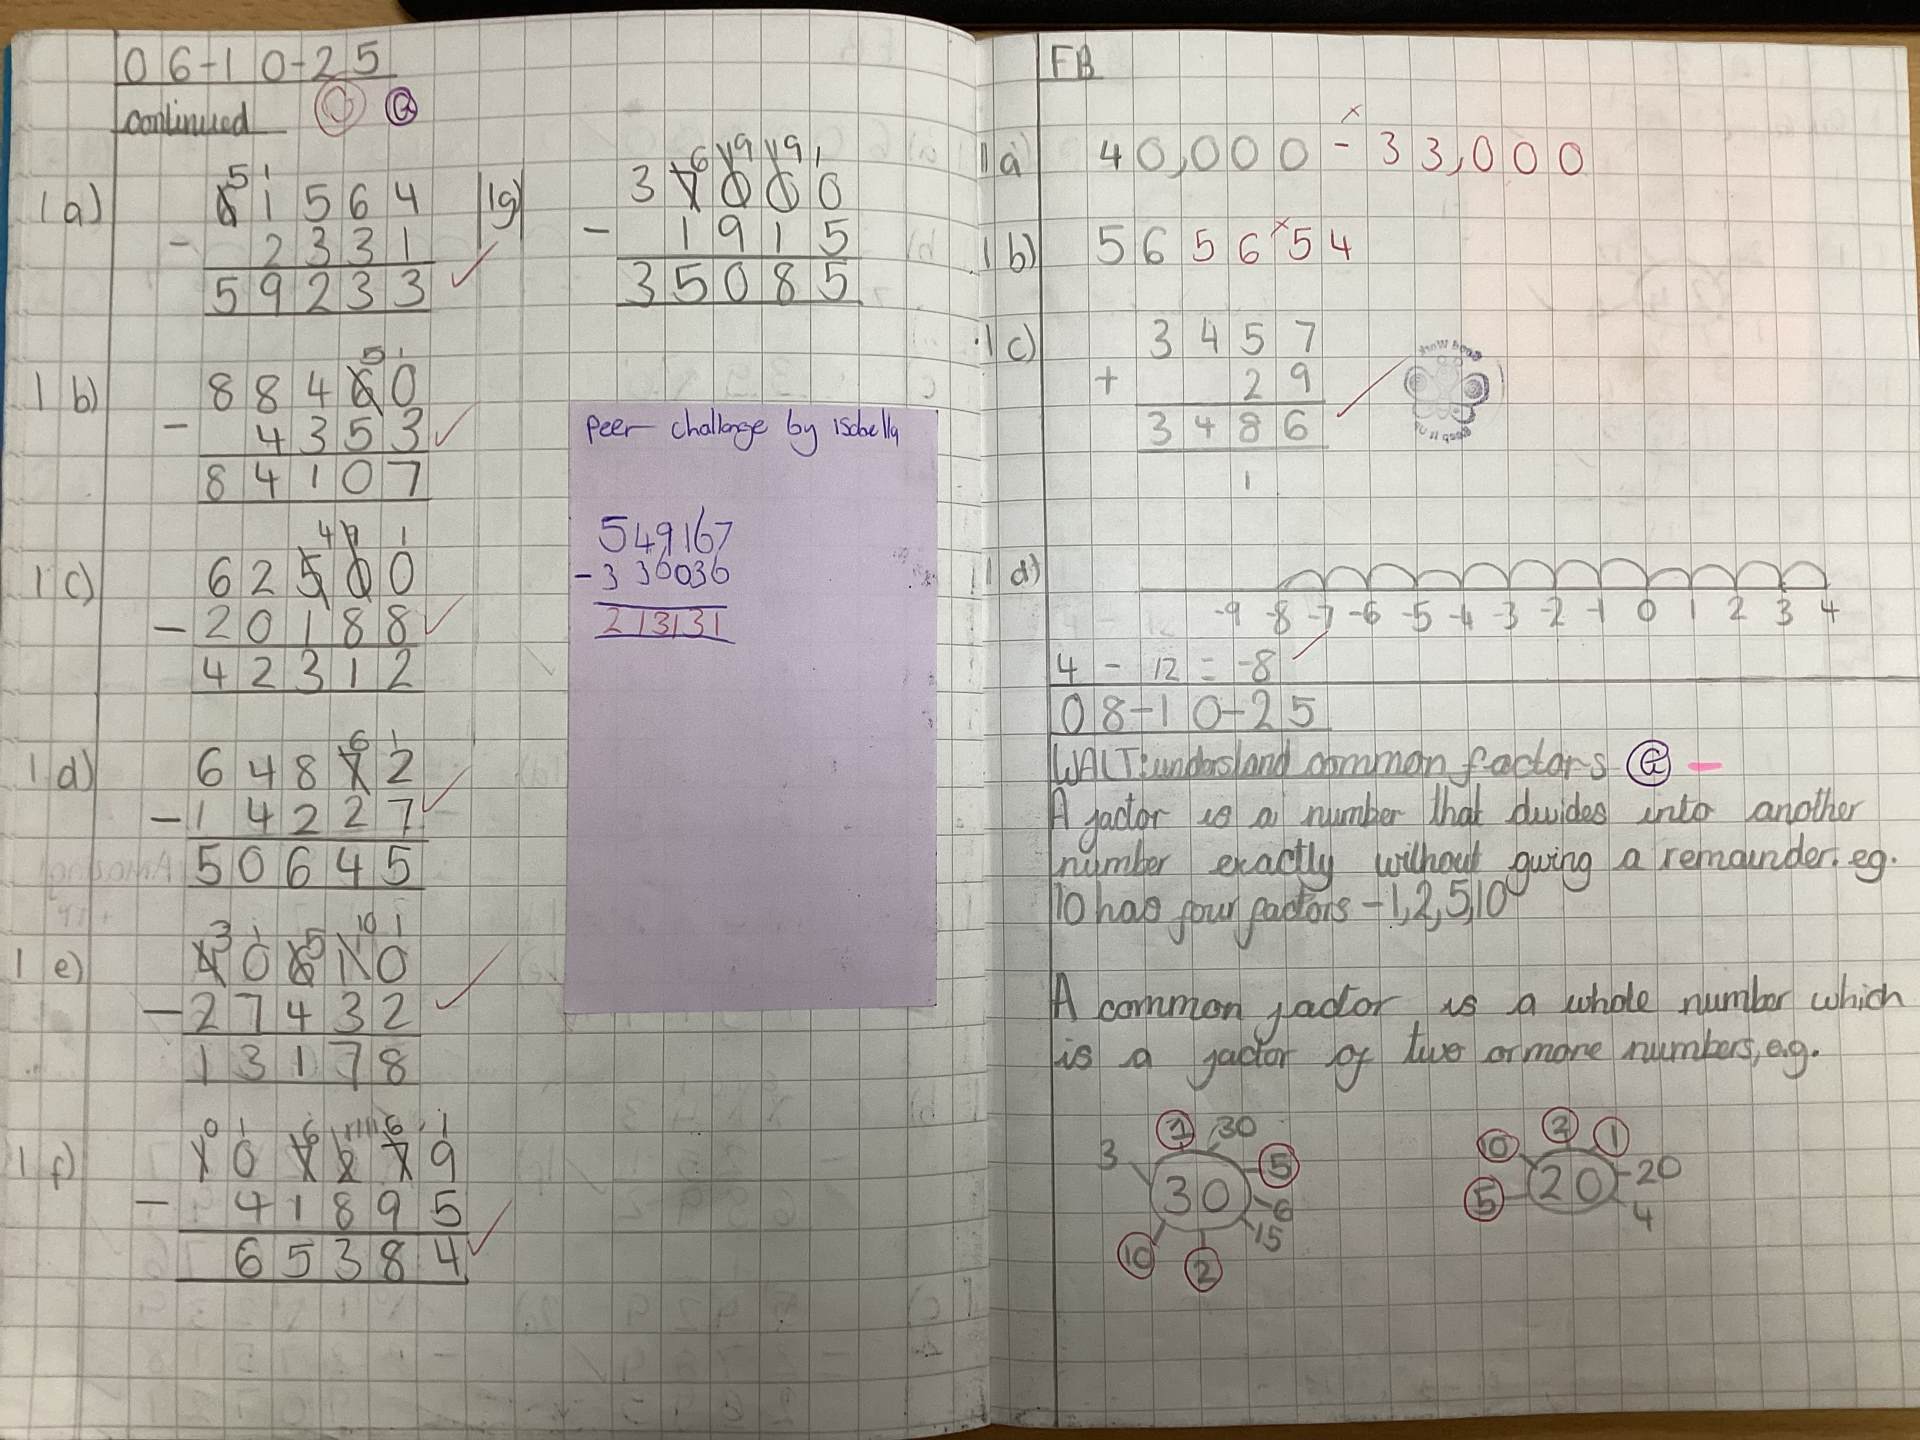 06-10-25
continued
1a) 61564
51
- 2331
59233
1b) 88460
51
- 4353
84107
1c) 62500
4 9 1
- 20188
42312
1d) 64872
6 1
- 14227
50645
1e) 40610
3 1 5 10 1
- 27432
13178
1f) 107279
0 1 6 11 6 1
- 41895
65384
1g) 37000
6 9 9 1
- 1915
35085
peer challenge by isabella
549167
- 336036
213131
FB
1a) 40,000 - 33,000
1b) 565654
1c) 3457
+ 29
3486
1
Good Work
Keep it up
1d)
-9 -8 -7 -6 -5 -4 -3 -2 -1 0 1 2 3 4
4 - 12 = -8
08-10-25
WALT: understand common factors G
A factor is a number that divides into another
number exactly without giving a remainder. eg.
10 has four factors - 1,2,5,10
A common factor is a whole number which
is a factor of two or more numbers, e.g.
30
1 30 5 6 15 2 10 3
20
10 2 1 20 4 5